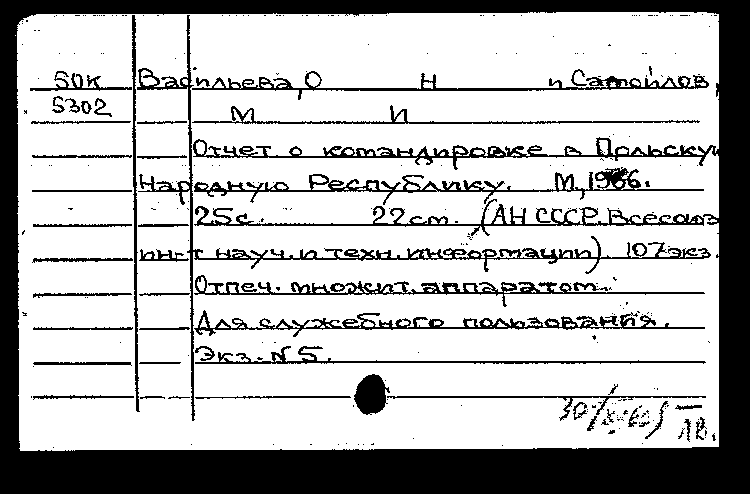 50К Васильева, О Н и Самойлов,
5302 М И
Отчет о командировке в Польскую
Народную Республику. М, 1966.
25с. 22см. (АН СССР. Всесоюз
ин-т науч. и техн. информации). 107экз.
Отпеч. множит. аппаратом.
Для служебного пользования.
Экз. N 5.
30/
ЛВ.